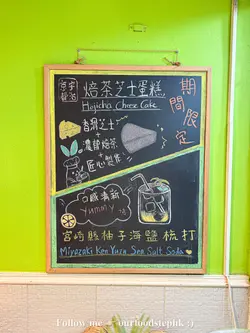 焙茶芝士蛋糕
Hojicha Cheese Cake
期間限定
香滑芝士
+
濃郁焙茶
+
匠心製作
口感清新
Yummy
宮崎縣柚子海鹽梳打
Miyazaki Ken Yuzu Sea Salt Soda
Follow me → ourfoodstephk :)